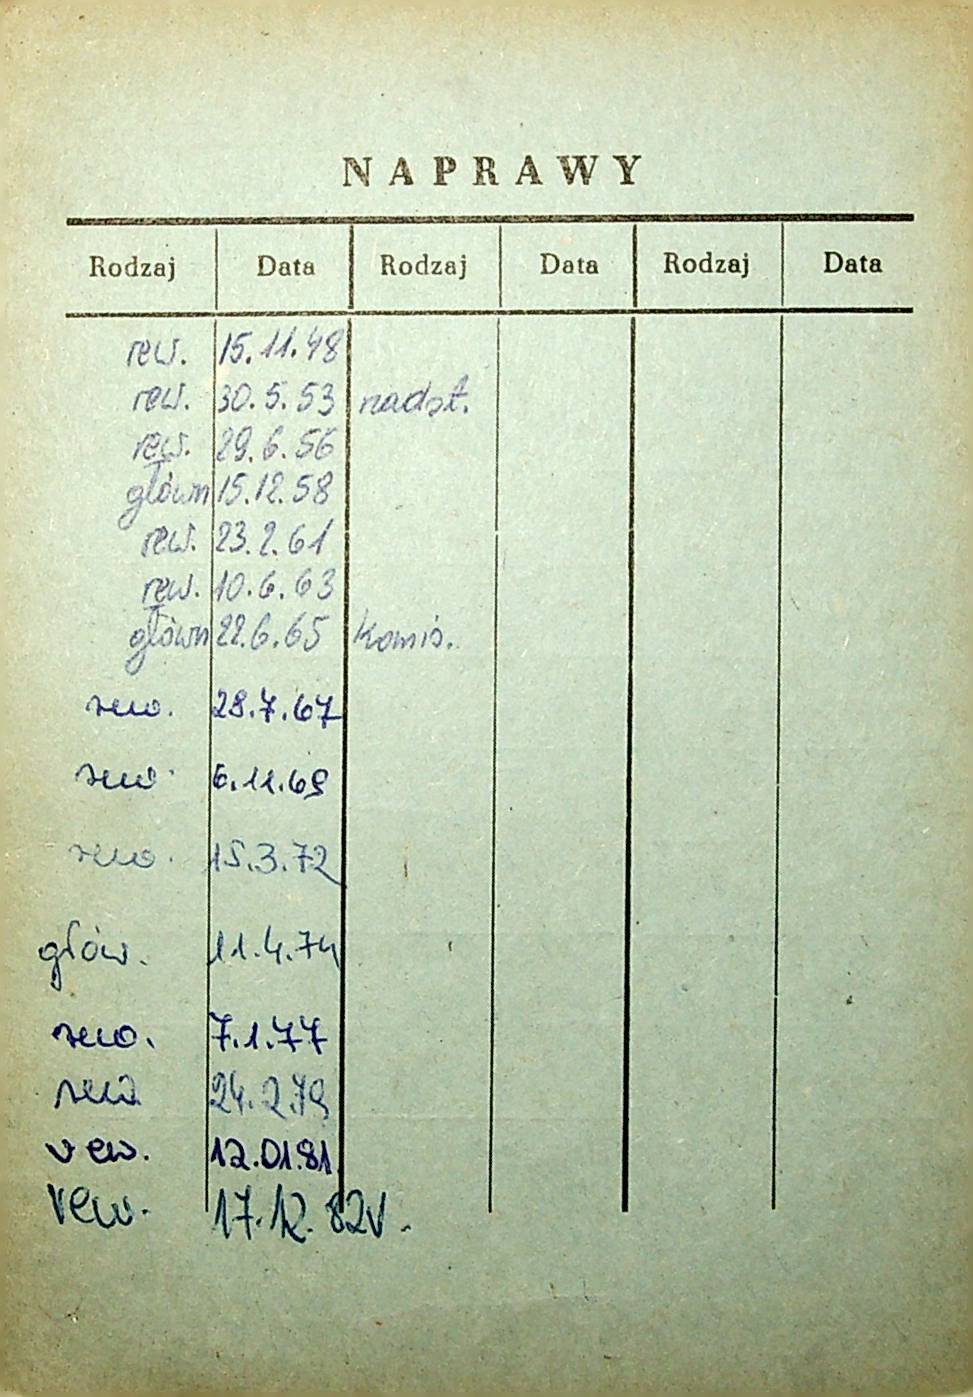 NAPRAWY
Rodzaj Data Rodzaj Data Rodzaj Data
rew. 15.11.48
rew. 30.5.53 nadzt.
rew. 29.6.56
główn 15.12.58
rew. 23.2.61
rew. 10.6.63
główn 22.6.65 komis.
rew. 28.7.67
rew. 6.11.69
rew. 15.3.72
głów. 11.4.74
rew. 7.1.77
rew 24.2.79
rew. 12.01.81
rew. 17.12.82r.